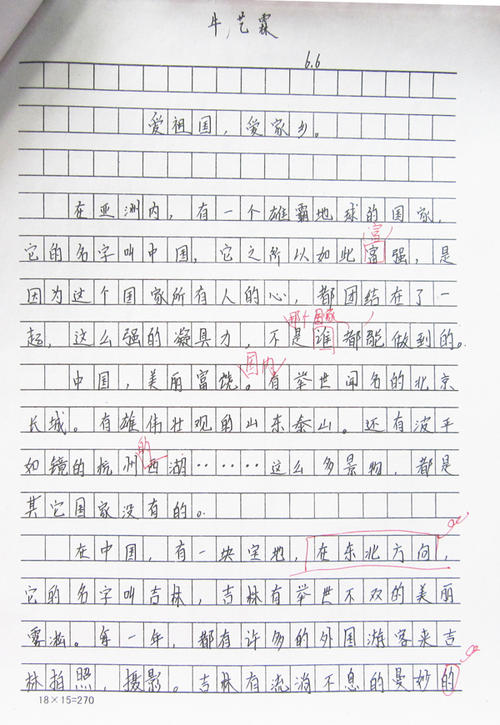 牛艺霖
6.6
爱祖国,爱家乡。
在亚洲内,有一个雄霸地球的国家,
富
它的名字叫中国,它之所以如此富强,是
因为这个国家所有人的心,都团结在了一
那个国家
起,这么强的凝具力,不是谁都能做到的。
国内
中国,美丽富饶。有举世闻名的北京
长城。有雄伟壮观的山东泰山。还有波平
的
如镜的杭州西湖……这么多景物,都是
其它国家没有的。
在中国,有一块宝地,在东北方向,
它的名字叫吉林,吉林有举世不双的美丽
雾凇。每一年,都有许多的外国游客来吉
林拍照,摄影。吉林有流淌不息的曼妙的
18×15=270